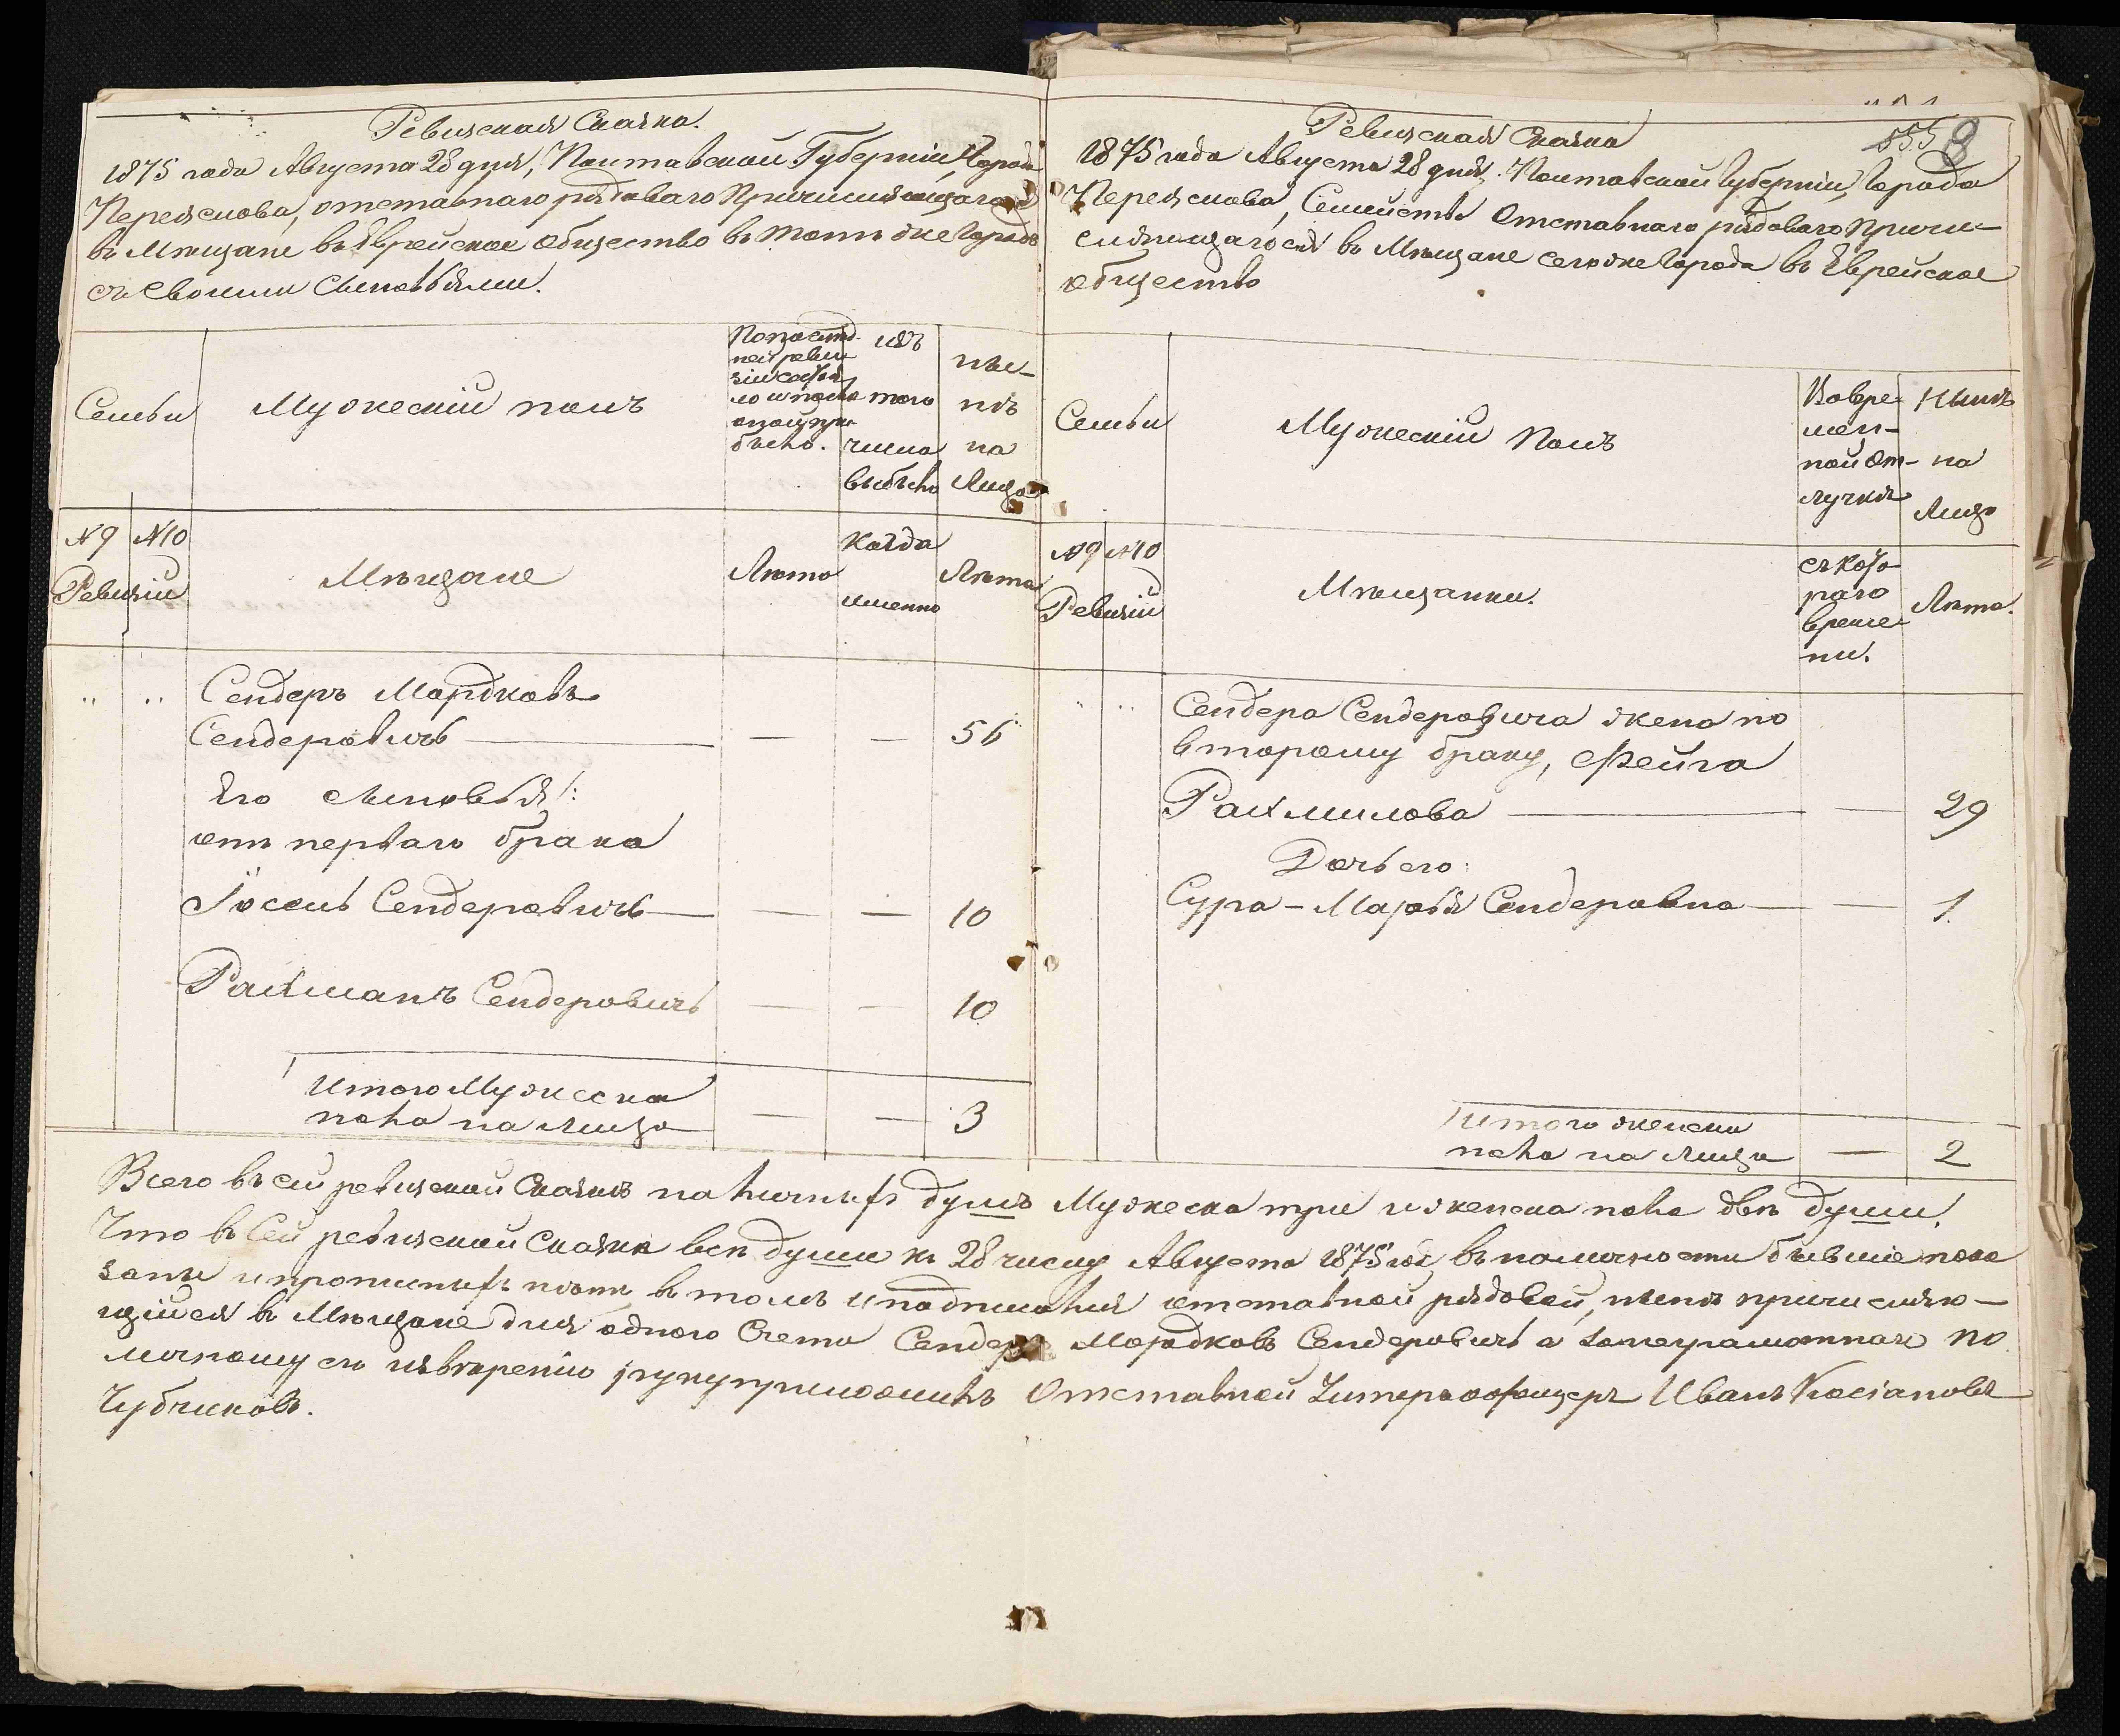 Ревизская Сказка.
1875 года Августа 28 дня, Полтавской Губернiи, Города
Переяслова, отставнаго рядоваго Причисляющагося
въ Мѣщане въ Еврейское общество въ томъ же Городѣ
съ своими Сыновьями.
Семьи
Мужескiй полъ
По послѣд-
ней реви
зiи состоя
ло и после
оной при
было.
изъ
того
числа
выбыло
ны-
нѣ
на
Лицо
№ 9 № 10
Ревизiи
Мѣщане
Лѣта
Когда
именно
Лѣта
Сендеръ Мордковъ
Сендеровичъ — — — 56
Его Сыновья:
отъ перваго брака
Іосель Сендеровичъ — — — 10
Рахманъ Сендеровичъ — — 10
Итого Мужеска
пола на лицо — — 3
Ревизская Сказка
555 8
1875 года Августа 28 дня. Полтавской Губернiи, Города
Переяслова, Семейства Отставнаго рядоваго Причи-
сляющагося въ Мѣщане сего же Города въ Еврейское
общество
Семьи
Мужескiй Полъ
Во вре-
мен-
ной от-
лучкѣ
Нынѣ
на
Лицо
№ 9 № 10
Ревизiй
Мѣщанки.
съ кото
раго
време
ни.
Лѣта.
Сендера Сендеровича жена по
второму браку, Фейга
Рахмилова — — 29
Дочь его:
Сура-Марья Сендеровна — — 1
Итого женска
пола на лицо — 2
Всего въ сей ревизской Сказкѣ наличныхъ душъ Мужеска три и женска пола двѣ души.
Что въ Сей ревизской Сказкѣ всѣ души къ 28 числу Августа 1875 года въ наличности бывшiе пока
заны и прописныхъ нѣтъ въ томъ и подписался отставной рядовой, нынѣ причисляю-
щiйся въ Мѣщане для однаго Счета Сендеръ Мордковъ Сендеровичъ а за неграмотнаго по
личному его увѣренiю руку приложилъ Отставной Унтеръ офицеръ Иванъ Касiановъ
Чубчиковъ.